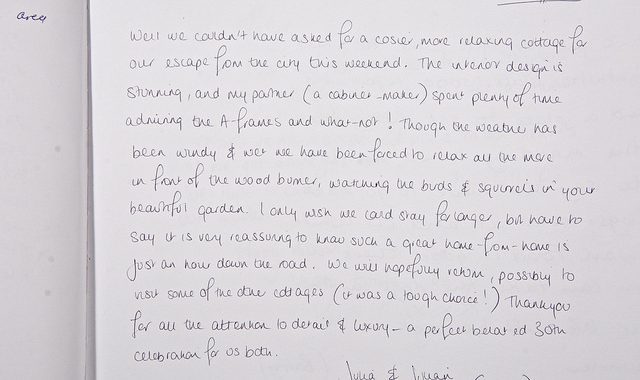 area
Well we couldn't have asked for a cosier, more relaxing cottage for
our escape from the city this weekend. The interior design is
stunning, and my partner (a cabinet-maker) spent plenty of time
admiring the A-frames and what-not! Though the weather has
been windy & wet we have been forced to relax all the more
in front of the wood burner, watching the birds & squirrels in your
beautiful garden. I only wish we could stay for longer, but have to
say it is very reassuring to know such a great home-from-home is
just an hour down the road. We will hopefully return, possibly to
visit some of the other cottages (it was a tough choice!) Thankyou
for all the attention to detail & luxury - a perfect belated 30th
celebration for us both.
Julia &